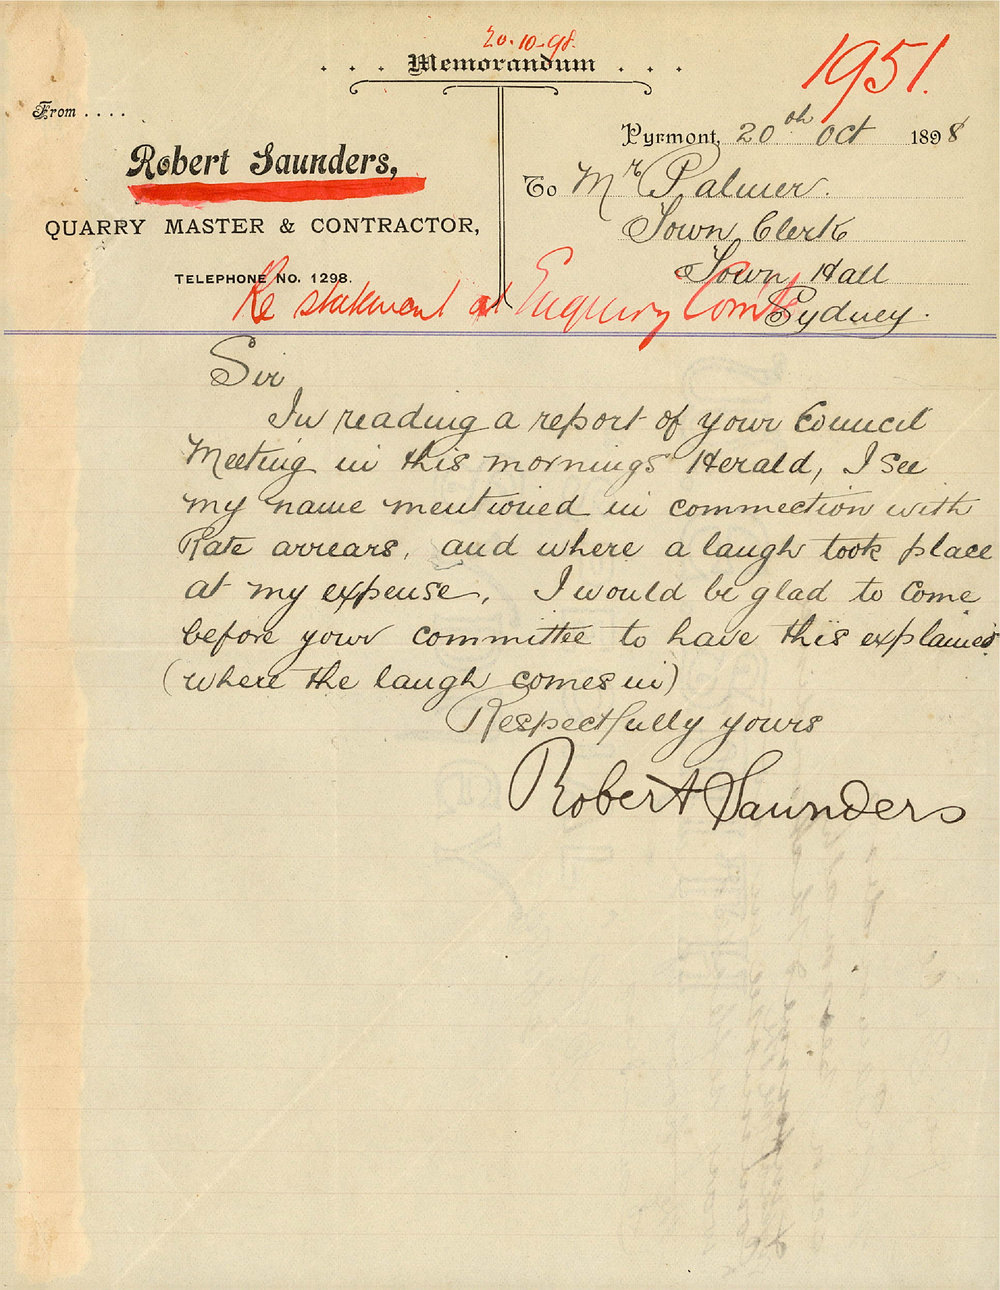 20.10.98.
. . . Memorandum . . .
1951.
From . . . .
Pyrmont, 20th Oct 1898
Robert Saunders,
To Mr Palmer.
QUARRY MASTER & CONTRACTOR,
Town Clerk
TELEPHONE NO. 1298.
Town Hall
Sydney.
Re statement at Enquiry Comte
Sir
In reading a report of your Council
Meeting in this mornings Herald, I see
my name mentioned in connection with
Rate arrears, and where a laugh took place
at my expense. I would be glad to come
before your committee to have this explained
(where the laugh comes in)
Respectfully yours
Robert Saunders